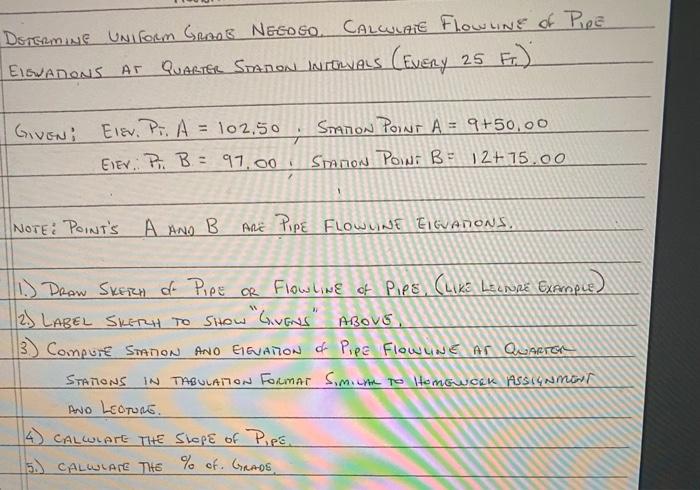 DETERMINE UNIFORM GRADE NEEDED. CALCULATE FLOWLINE of PIPE
ELEVATIONS AT QUARTER STATION INTERVALS (EVERY 25 FT.)
GIVEN: ELEV. PT. A = 102.50 ; STATION POINT A = 9+50.00
ELEV. PT. B = 97.00 ; STATION POINT B = 12+75.00
NOTE: POINT'S A AND B ARE PIPE FLOWLINE ELEVATIONS.
1.) DRAW SKETCH of PIPE OR FLOWLINE of PIPE. (LIKE LECTURE EXAMPLE)
2.) LABEL SKETCH TO SHOW "GIVENS" ABOVE.
3.) COMPUTE STATION AND ELEVATION of PIPE FLOWLINE AT QUARTER
STATIONS IN TABULATION FORMAT SIMILAR TO HOMEWORK ASSIGNMENT
AND LECTURE.
4.) CALCULATE THE SLOPE OF PIPE.
5.) CALCULATE THE % of. GRADE.